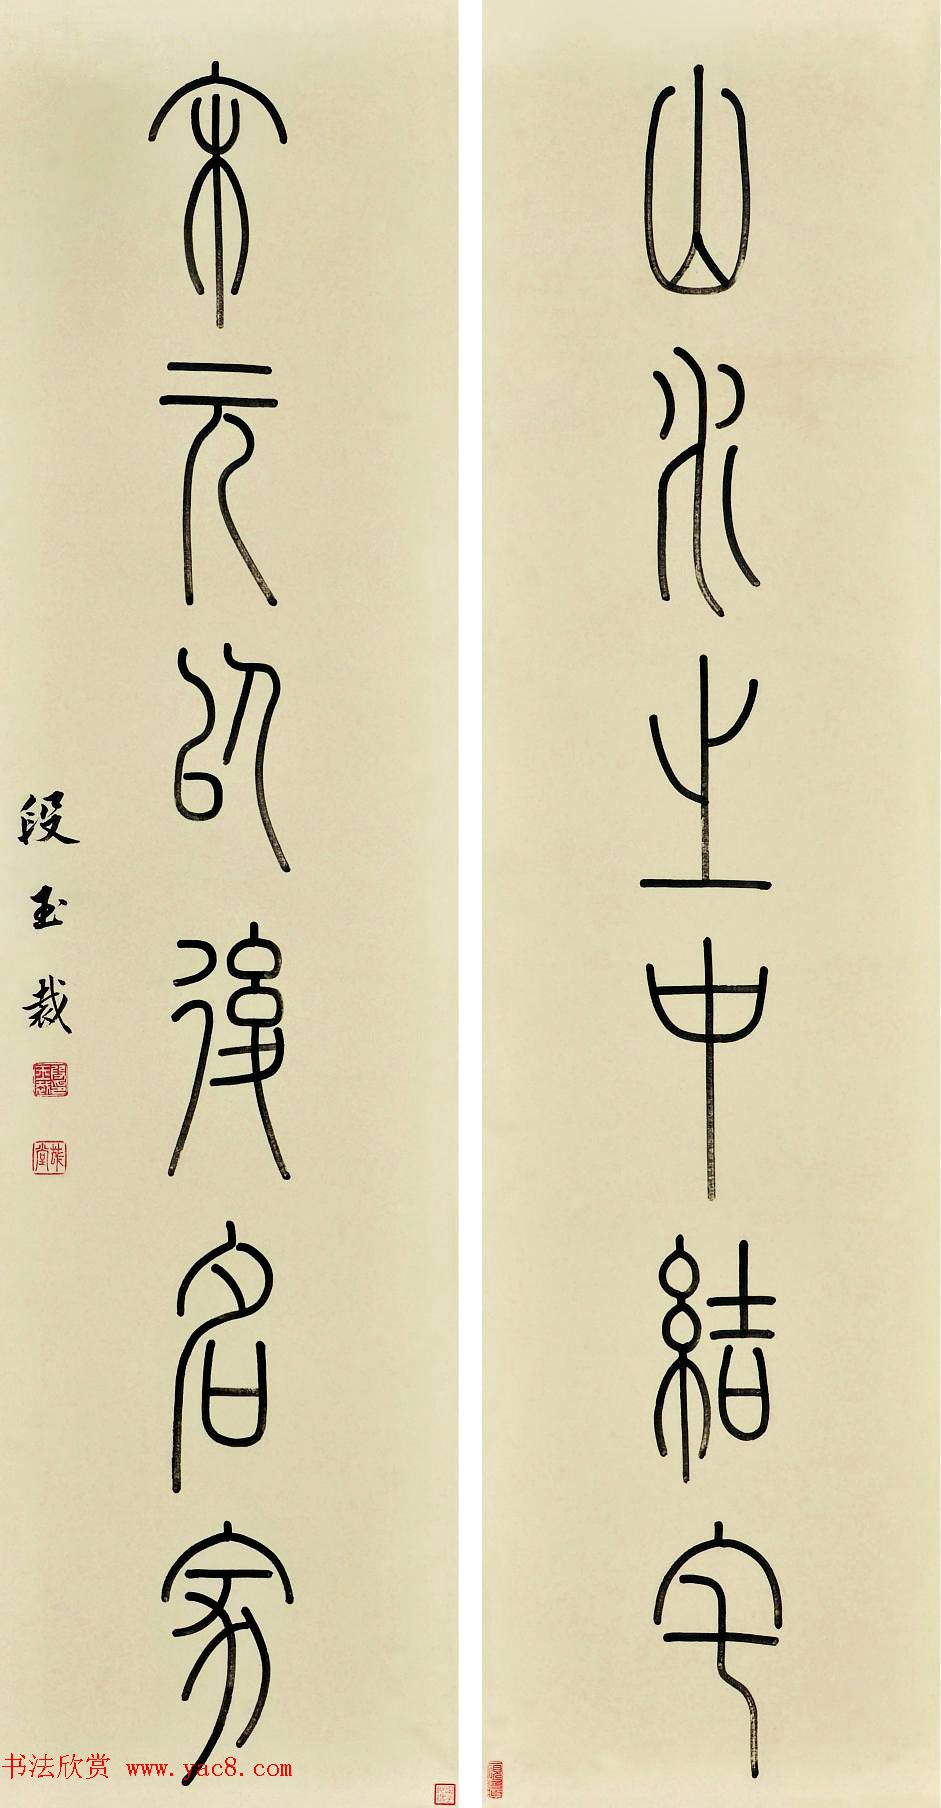 山水之中結宇
宋元以後名家
段玉裁
茂堂
书法欣赏 www.yac8.com